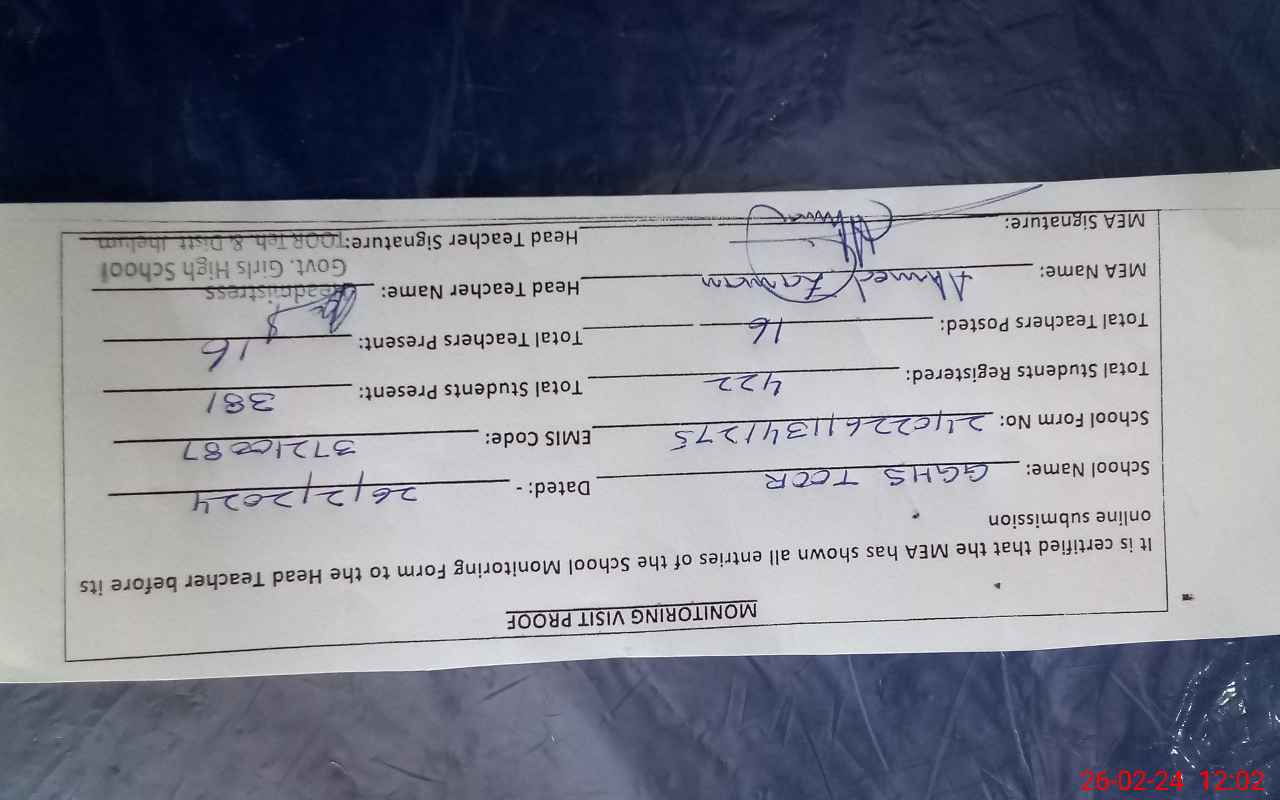 MONITORING VISIT PROOF
It is certified that the MEA has shown all entries of the School Monitoring Form to the Head Teacher before its
online submission
School Name: GGHS TOOR Dated: - 26/2/2024
School Form No: 24022611341275 EMIS Code: 37210087
Total Students Registered: 422 Total Students Present: 381
Total Teachers Posted: 16 Total Teachers Present: 16
MEA Name: Ahmed Zaman Head Teacher Name: Headmistress
Govt. Girls High School
MEA Signature: Head Teacher Signature: TOOR Teh. & Distt Jhelum
26-02-24 12:02